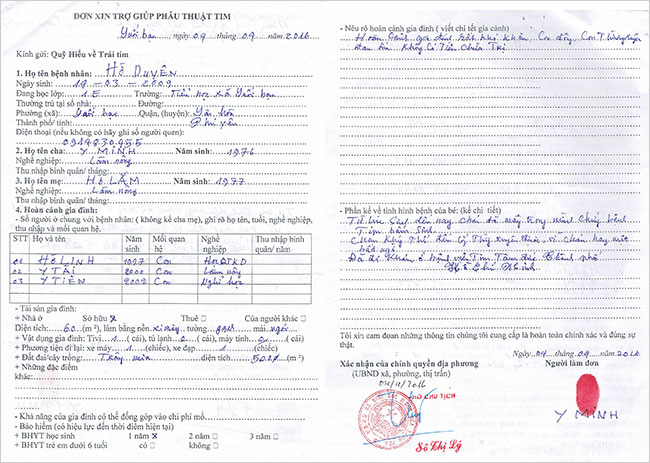 ĐƠN XIN TRỢ GIÚP PHẪU THUẬT TIM
Suối bạc, ngày 09 tháng 09 năm 2016
Kính gửi: Quỹ Hiểu về Trái tim
1. Họ tên bệnh nhân: Hờ DUYÊN
Ngày sinh: 19 - 03 - 2009
Đang học lớp: 1E Trường: Tiểu học xã Suối bạc
Thường trú tại số nhà: Đường:
Phường (xã): Suối bạc Quận, (huyện): Sơn hòa
Thành phố/ tỉnh: Phú yên
Điện thoại (nếu không có hãy ghi số người quen):
2. Họ tên cha: Y MINH Năm sinh: 1976
Nghề nghiệp: Làm nông
Thu nhập bình quân/ tháng:
3. Họ tên mẹ: Hờ LÂM Năm sinh: 1977
Nghề nghiệp: Làm nông
Thu nhập bình quân/ tháng:
4. Hoàn cảnh gia đình:
- Số người ở chung với bệnh nhân: ( không kể cha mẹ), ghi rõ họ tên, tuổi, nghề nghiệp,
thu nhập và mối quan hệ.
STT Họ và tên Năm sinh Mối quan hệ Nghề nghiệp Thu nhập bình quân/ năm
01 Hờ LINH 1997 Con
02 Y TÀI 2000 Con Làm nông
03 Y TIÊN 2002 Con Nghỉ học
- Tài sản gia đình:
+ Nhà ở Sở hữu x Thuê □ Của người khác □
Diện tích: 60 (m²), làm bằng nền: xi măng, tường: gạch mái: ngói
+ Vật dụng gia đình: Tivi 1 (cái), tủ lạnh 0 (cái), máy tính 0 (cái)
+ Phương tiện đi lại: xe máy 1 (chiếc), xe đạp 1 (chiếc)
+ Đất đai/cây trồng: Trồng mía diện tích: 5000 (m²)
+ Những đặc điểm
khác:
- Khả năng của gia đình có thể đóng góp vào chi phí mổ
- Bảo hiểm (có hiệu lực đến thời điểm hiện tại)
+ BHYT học sinh 1 năm x 2 năm □ 3 năm □
+ BHYT trẻ em dưới 6 tuổi có □ không □
- Nêu rõ hoàn cảnh gia đình ( viết chi tiết gia cảnh)
gia đình khó khăn, Con đông, Con
đau ốm Không Có Tiền Chữa Trị
- Phần kể về tình hình bệnh của bé: (kể chi tiết)
Từ lúc Sinh đến nay
Tim bẩm Sinh
Đã đi Khám ở bệnh viện Tim Tâm đức Thành phố
Hồ Chí Minh
Tôi xin cam đoan những thông tin chúng tôi cung cấp là hoàn toàn chính xác và đúng sự
thật.
Ngày 09 tháng 09 năm 2016
Xác nhận của chính quyền địa phương Người làm đơn
(UBND xã, phường, thị trấn)
PHÓ CHỦ TỊCH
Y MINH
Sô Thị Lý